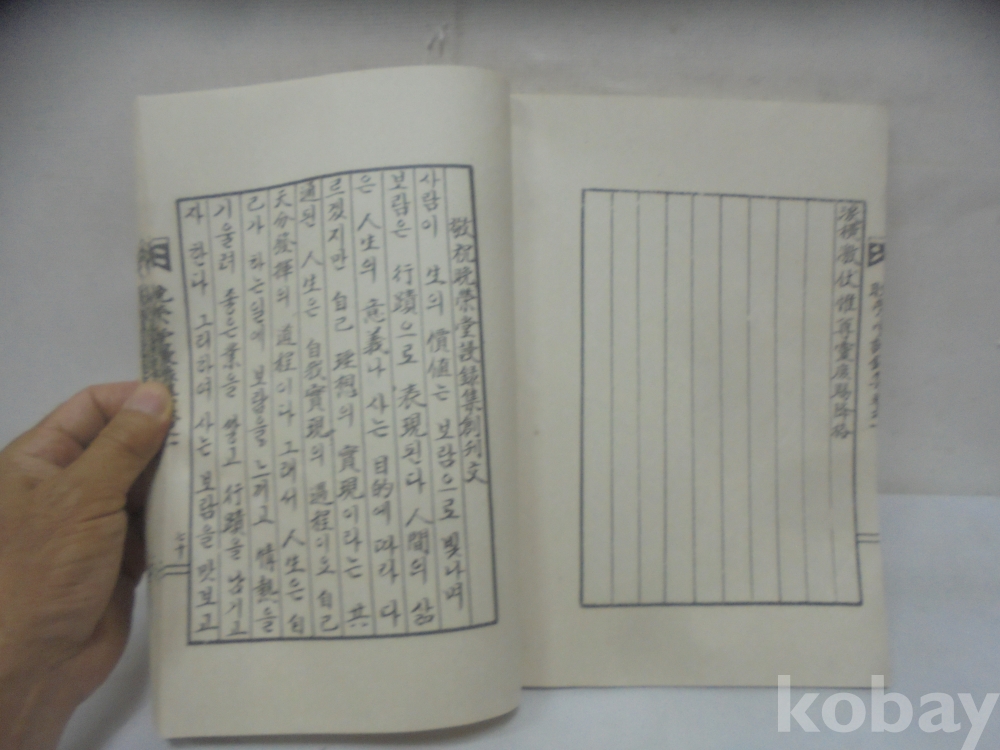 敬祝晩榮堂謾錄集創刊文
사람이 生의 價値는 보람으로 빛나며
보람은 行蹟으로 表現된다 人間의 삶
은 人生의 意義나 사는 目的에 따라 다
르겠지만 自己 理想의 實現이라는 共
通된 人生은 自我實現의 過程이요 自己
天分發揮의 過程이다 그래서 人生은 自
己가 하는일에 보람을 느끼고 情熱을
기울려 좋은業을 쌓고 行蹟을 남기고
자 한다 그리하여 사는 보람을 맛보고
kobay